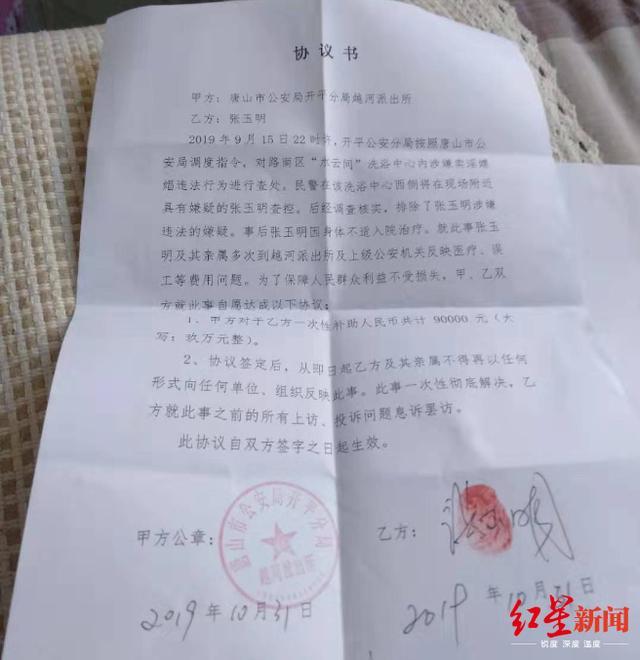 协议书
甲方：唐山市公安局开平分局越河派出所
乙方：张玉明
2019年9月15日22时许，开平公安分局按照唐山市公
安局调度指令，对路南区“水云间”洗浴中心内涉嫌卖淫嫖
娼违法行为进行查处。民警在该洗浴中心西侧将在现场附近
具有嫌疑的张玉明查控。后经调查核实，排除了张玉明涉嫌
违法的嫌疑。事后张玉明因身体不适入院治疗。就此事张玉
明及其亲属多次到越河派出所及上级公安机关反映医疗、误
工等费用问题。为了保障人民群众利益不受损失，甲、乙双
方就此事自愿达成以下协议：
1、甲方对于乙方一次性补助人民币共计 90000 元（大
写：玖万元整）。
2、协议签定后，从即日起乙方及其亲属不得再以任何
形式向任何单位、组织反映此事。此事一次性彻底解决，乙
方就此事之前的所有上访、投诉问题息诉罢访。
此协议自双方签字之日起生效。
甲方公章：
唐山市公安局开平分局
越河派出所
乙方：
张玉明
2019年10月31日
2019年10月31日
红星新闻
锐度 深度 温度